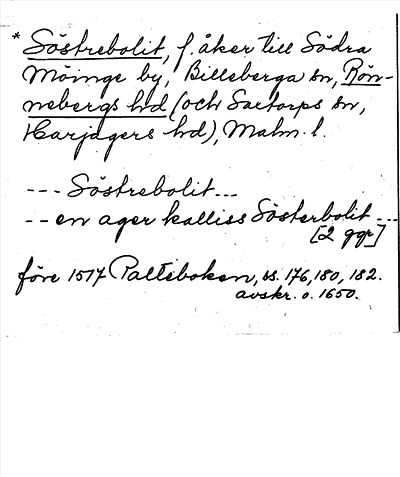 * Söstrebolit, f. åker till Södra
Möinge by, Billeberga sn, Rön-
nebergs hd (och Saxtorps sn,
Harjagers hd), Malm. l.
--- Söstrebolit ---
-- en ager kalliss Sösterbolit ---
[2 ggr]
före 1517 Palteboken, ss. 176, 180, 182.
avskr. o. 1650.